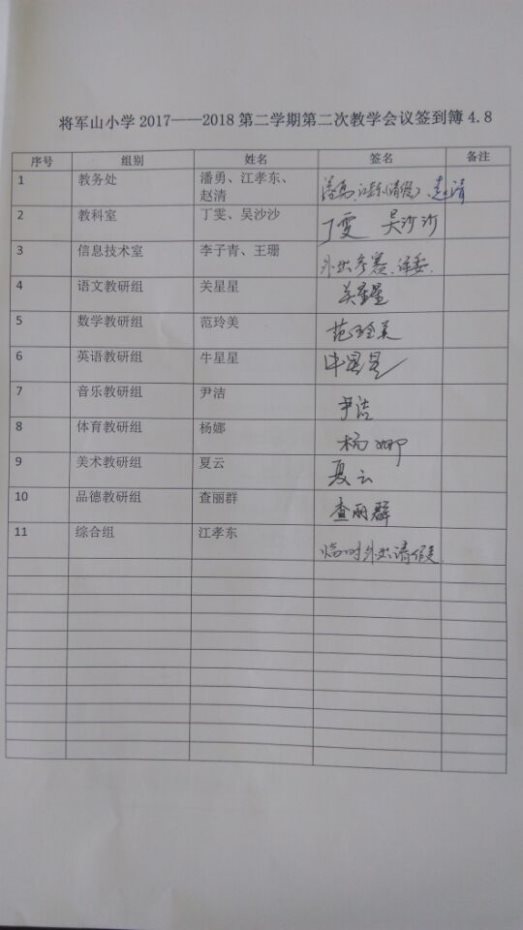 将军山小学2017——2018第二学期第二次教学会议签到簿4.8
序号 组别 姓名 签名 备注
1 教务处 潘勇、江孝东、赵清 潘勇、江孝东(请假)、赵清
2 教科室 丁雯、吴沙沙 丁雯 吴沙沙
3 信息技术室 李子青、王珊 外出参赛、评委.
4 语文教研组 关星星 关星星
5 数学教研组 范玲美 范玲美
6 英语教研组 牛星星 牛星星
7 音乐教研组 尹洁 尹洁
8 体育教研组 杨娜 杨娜
9 美术教研组 夏云 夏云
10 品德教研组 查丽群 查丽群
11 综合组 江孝东 临时外出请假